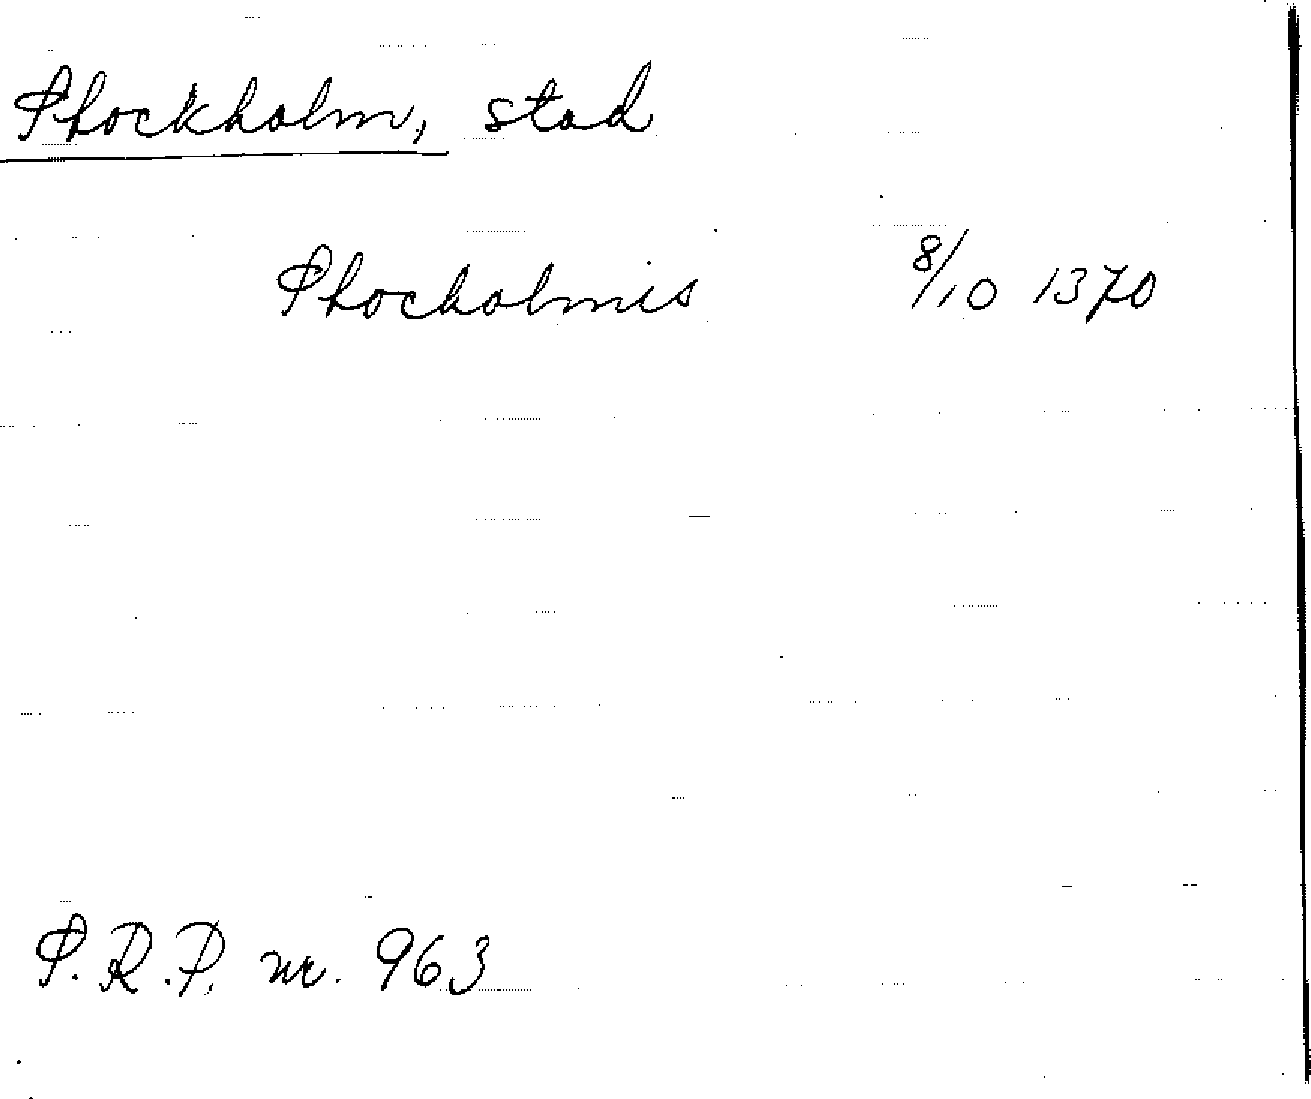 Stockholm, stad
Stocholmis 8/10 1370
S.R.P. nr. 963